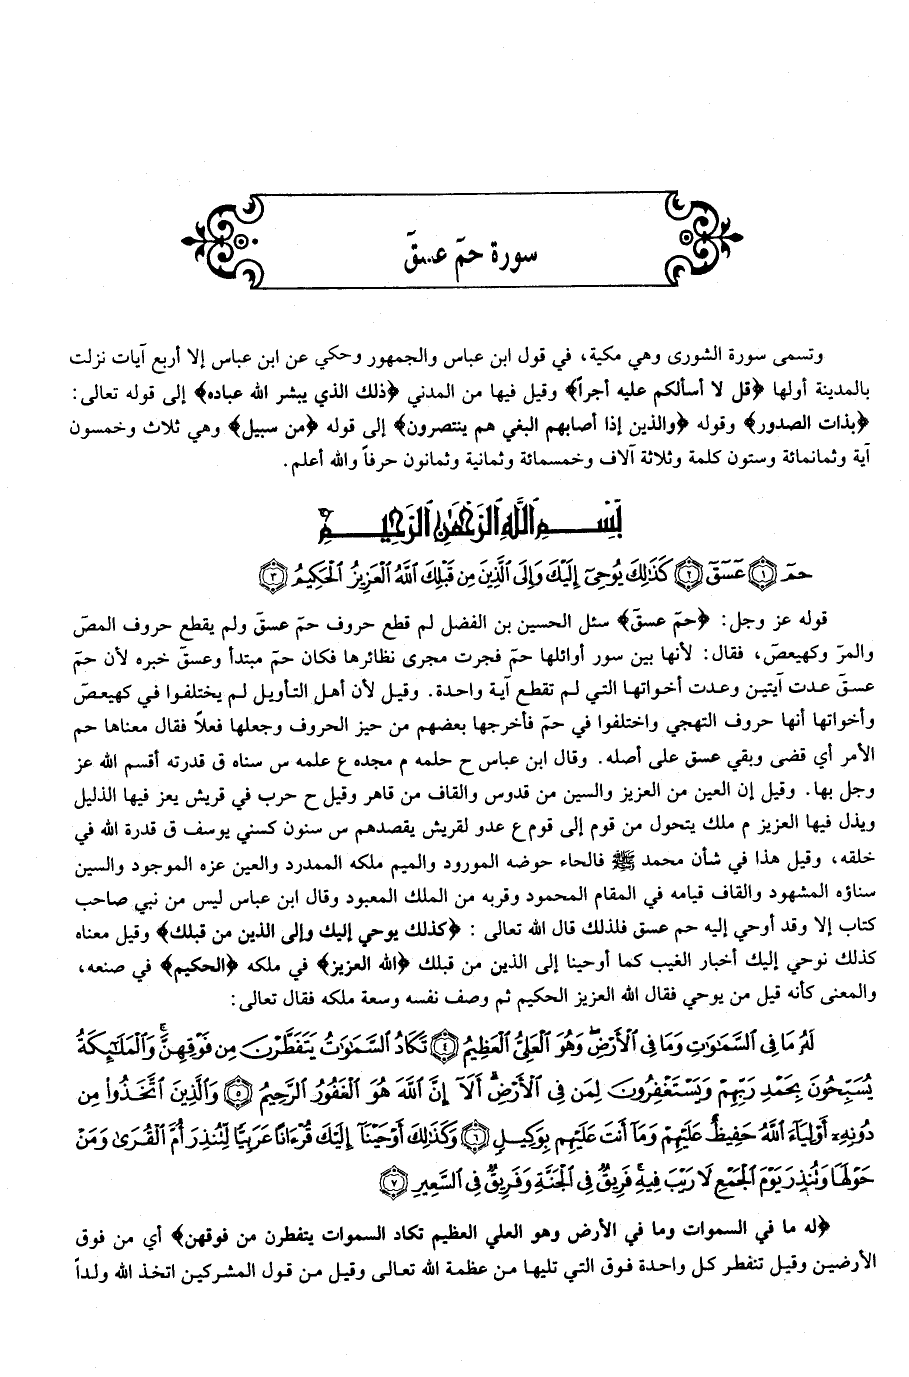 سورة حمۤ عۤسۤقۤ
وتسمى سورة الشورى وهي مكية، في قول ابن عباس والجمهور وحكي عن ابن عباس إلا أربع آيات نزلت
بالمدينة أولها ﴿قل لا أسألكم عليه أجراً﴾ وقيل فيها من المدني ﴿ذلك الذي يبشر الله عباده﴾ إلى قوله تعالى:
﴿بذات الصدور﴾ وقوله ﴿والذين إذا أصابهم البغي هم ينتصرون﴾ إلى قوله ﴿من سبيل﴾ وهي ثلاث وخمسون
آية وثمانمائة وستون كلمة وثلاثة آلاف وخمسمائة وثمانية وثمانون حرفاً والله أعلم.
بِسْمِ اللَّهِ الرَّحْمَٰنِ الرَّحِيمِ
حمۤ ﴿١﴾ عۤسۤقۤ ﴿٢﴾ كَذَٰلِكَ يُوحِيٓ إِلَيْكَ وَإِلَى ٱلَّذِينَ مِن قَبْلِكَ ٱللَّهُ ٱلْعَزِيزُ ٱلْحَكِيمُ ﴿٣﴾
قوله عز وجل: ﴿حمۤ عسقۤ﴾ سئل الحسين بن الفضل لم قطع حروف حمۤ عسقۤ ولم يقطع حروف المصۤ
والمرۤ وكهيعصۤ، فقال: لأنها بين سور أوائلها حمۤ فجرت مجرى نظائرها فكان حمۤ مبتدأ وعسقۤ خبره لأن حمۤ
عسقۤ عدت آيتين وعدت أخواتها التي لم تقطع آية واحدة. وقيل لأن أهل التأويل لم يختلفوا في كهيعصۤ
وأخواتها أنها حروف التهجي واختلفوا في حمۤ فأخرجها بعضهم من حيز الحروف وجعلها فعلاً فقال معناها حم
الأمر أي قضى وبقي عسق على أصله. وقال ابن عباس ح حلمه م مجده ع علمه س سناه ق قدرته أقسم الله عز
وجل بها. وقيل إن العين من العزيز والسين من قدوس والقاف من قاهر وقيل ح حرب في قريش يعز فيها الذليل
ويذل فيها العزيز م ملك يتحول من قوم إلى قوم ع عدو لقريش يقصدهم س سنون كسني يوسف ق قدرة الله في
خلقه، وقيل هذا في شأن محمد ﷺ فالحاء حوضه المورود والميم ملكه الممدرد والعين عزه الموجود والسين
سناؤه المشهود والقاف قيامه في المقام المحمود وقربه من الملك المعبود وقال ابن عباس ليس من نبي صاحب
كتاب إلا وقد أوحي إليه حم عسق فلذلك قال الله تعالى : ﴿كذلك يوحي إليك وإلى الذين من قبلك﴾ وقيل معناه
كذلك نوحي إليك أخبار الغيب كما أوحينا إلى الذين من قبلك ﴿الله العزيز﴾ في ملكه ﴿الحكيم﴾ في صنعه،
والمعنى كأنه قيل من يوحي فقال الله العزيز الحكيم ثم وصف نفسه وسعة ملكه فقال تعالى:
لَهُۥ مَا فِى ٱلسَّمَٰوَٰتِ وَمَا فِى ٱلْأَرْضِ وَهُوَ ٱلْعَلِىُّ ٱلْعَظِيمُ ﴿٤﴾ تَكَادُ ٱلسَّمَٰوَٰتُ يَتَفَطَّرْنَ مِن فَوْقِهِنَّ وَٱلْمَلَٰٓئِكَةُ
يُسَبِّحُونَ بِحَمْدِ رَبِّهِمْ وَيَسْتَغْفِرُونَ لِمَن فِى ٱلْأَرْضِ أَلَآ إِنَّ ٱللَّهَ هُوَ ٱلْغَفُورُ ٱلرَّحِيمُ ﴿٥﴾ وَٱلَّذِينَ ٱتَّخَذُوا۟ مِن
دُونِهِۦٓ أَوْلِيَآءَ ٱللَّهُ حَفِيظٌ عَلَيْهِمْ وَمَآ أَنتَ عَلَيْهِم بِوَكِيلٍ ﴿٦﴾ وَكَذَٰلِكَ أَوْحَيْنَآ إِلَيْكَ قُرْءَانًا عَرَبِيًّا لِّتُنذِرَ أُمَّ ٱلْقُرَىٰ وَمَنْ
حَوْلَهَا وَتُنذِرَ يَوْمَ ٱلْجَمْعِ لَا رَيْبَ فِيهِ فَرِيقٌ فِى ٱلْجَنَّةِ وَفَرِيقٌ فِى ٱلسَّعِيرِ ﴿٧﴾
﴿له ما في السموات وما في الأرض وهو العلي العظيم تكاد السموات يتفطرن من فوقهن﴾ أي من فوق
الأرضين وقيل تنفطر كل واحدة فوق التي تليها من عظمة الله تعالى وقيل من قول المشركين اتخذ الله ولداً